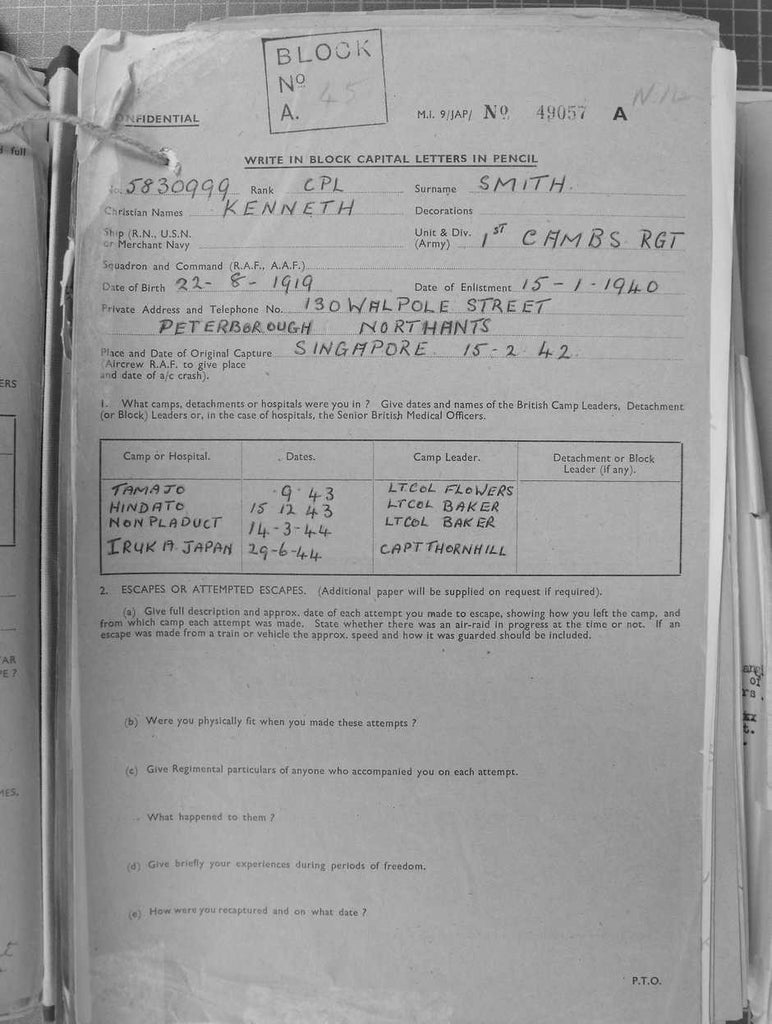 BLOCK
Nº
A. 45
NFIDENTIAL
M.I. 9/JAP/ Nº 49057 A
WRITE IN BLOCK CAPITAL LETTERS IN PENCIL
No. 5830999 Rank CPL Surname SMITH.
Christian Names KENNETH Decorations
Ship (R.N., U.S.N. or Merchant Navy
Unit & Div. (Army) 1ST CAMBS RGT
Squadron and Command (R.A.F., A.A.F.)
Date of Birth 22-8-1919 Date of Enlistment 15-1-1940
Private Address and Telephone No. 130 WALPOLE STREET
PETERBOROUGH NORTHANTS
Place and Date of Original Capture SINGAPORE. 15-2.42.
(Aircrew R.A.F. to give place
and date of a/c crash).
1. What camps, detachments or hospitals were you in ? Give dates and names of the British Camp Leaders, Detachment
(or Block) Leaders or, in the case of hospitals, the Senior British Medical Officers.
Camp or Hospital. Dates. Camp Leader. Detachment or Block
Leader (if any).
TAMAJO 9 43 LTCOL FLOWERS
HINDATO 15 12 43 LTCOL BAKER
NONPLADUCT 14-3-44 LTCOL BAKER
IRUKA JAPAN 29-6-44 CAPT THORNHILL
2. ESCAPES OR ATTEMPTED ESCAPES. (Additional paper will be supplied on request if required).
(a) Give full description and approx. date of each attempt you made to escape, showing how you left the camp, and
from which camp each attempt was made. State whether there was an air-raid in progress at the time or not. If an
escape was made from a train or vehicle the approx. speed and how it was guarded should be included.
(b) Were you physically fit when you made these attempts ?
(c) Give Regimental particulars of anyone who accompanied you on each attempt.
What happened to them ?
(d) Give briefly your experiences during periods of freedom.
(e) How were you recaptured and on what date ?
P.T.O.